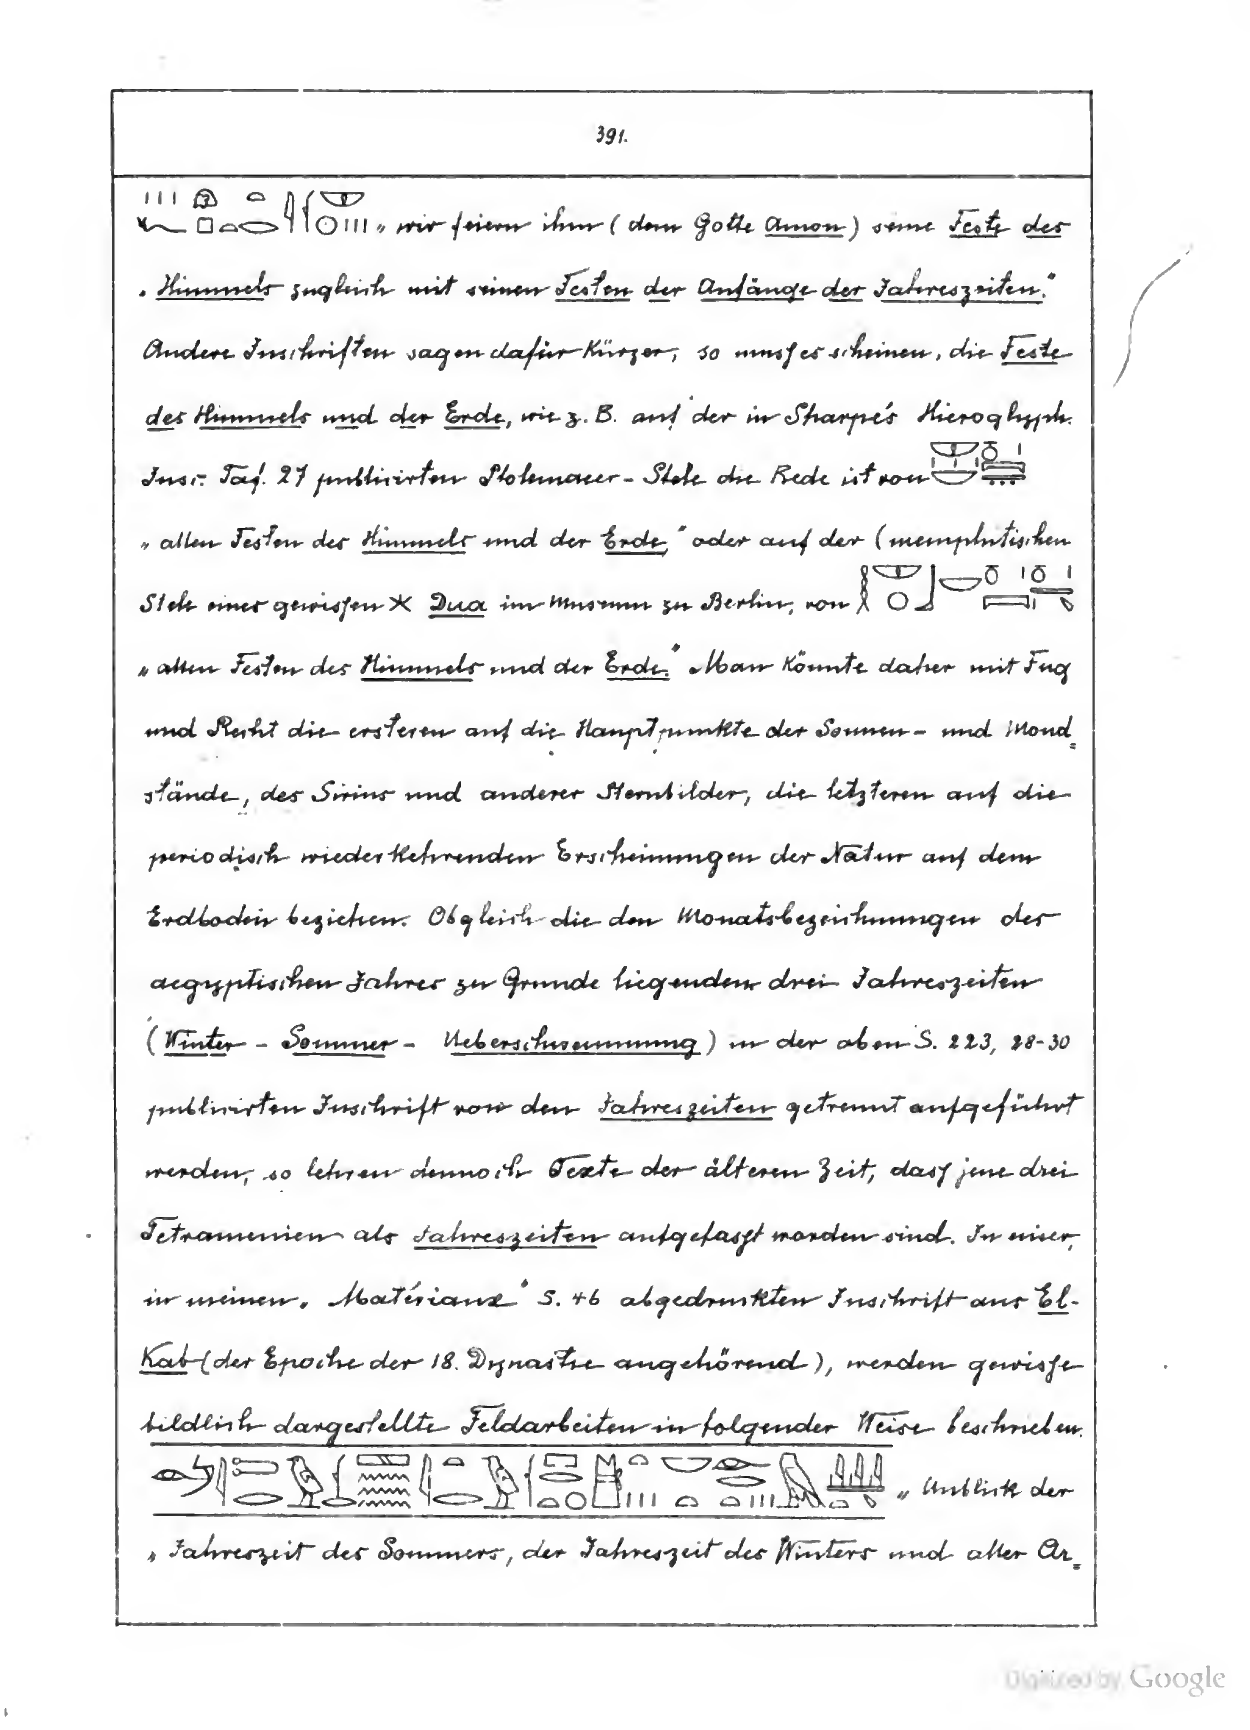 391.
„ wir feiern ihm (dem Gotte Amon) seine Feste des
„ Himmels zugleich mit seinen Festen der Anfänge der Jahreszeiten."
Andere Inschriften sagen dafür Kürzer, so muss es scheinen, die Feste
des Himmels und der Erde, wie z. B. auf der in Sharpe's Hieroglyph.
Inscr. Taf. 27 publicirten Ptolemaeer-Stele die Rede ist von
„ allen Festen des Himmels und der Erde," oder auf der (memphitischen
Stele eines gewissen Dua im Museum zu Berlin, von
„ allen Festen des Himmels und der Erde." Man Könnte daher mit Fug
und Recht die ersteren auf die Hauptpunkte der Sonnen- und Mond=
stände, des Sirius und anderer Sternbilder, die letzteren auf die
periodisch wiederkehrenden Erscheinungen der Natur auf dem
Erdboden beziehen. Obgleich die den Monatsbezeichnungen des
aegyptischen Jahres zu Grunde liegenden drei Jahreszeiten
(Winter - Sommer - Ueberschwemmung) in der oben S. 223, 28-30
publicirten Inschrift von den Jahreszeiten getrennt aufgeführt
werden, so lehren dennoch Texte der älteren Zeit, dass jene drei
Tetramenien als Jahreszeiten aufgefasst worden sind. In einer,
in meinen „ Matériaux" S. 46 abgedruckten Inschrift aus El-
Kab (der Epoche der 18. Dynastie angehörend), werden gewisse
bildlich dargestellte Feldarbeiten in folgender Weise beschrieben.
„ Anblick der
„ Jahreszeit des Sommers, der Jahreszeit des Winters und aller Ar=
Digitized by Google